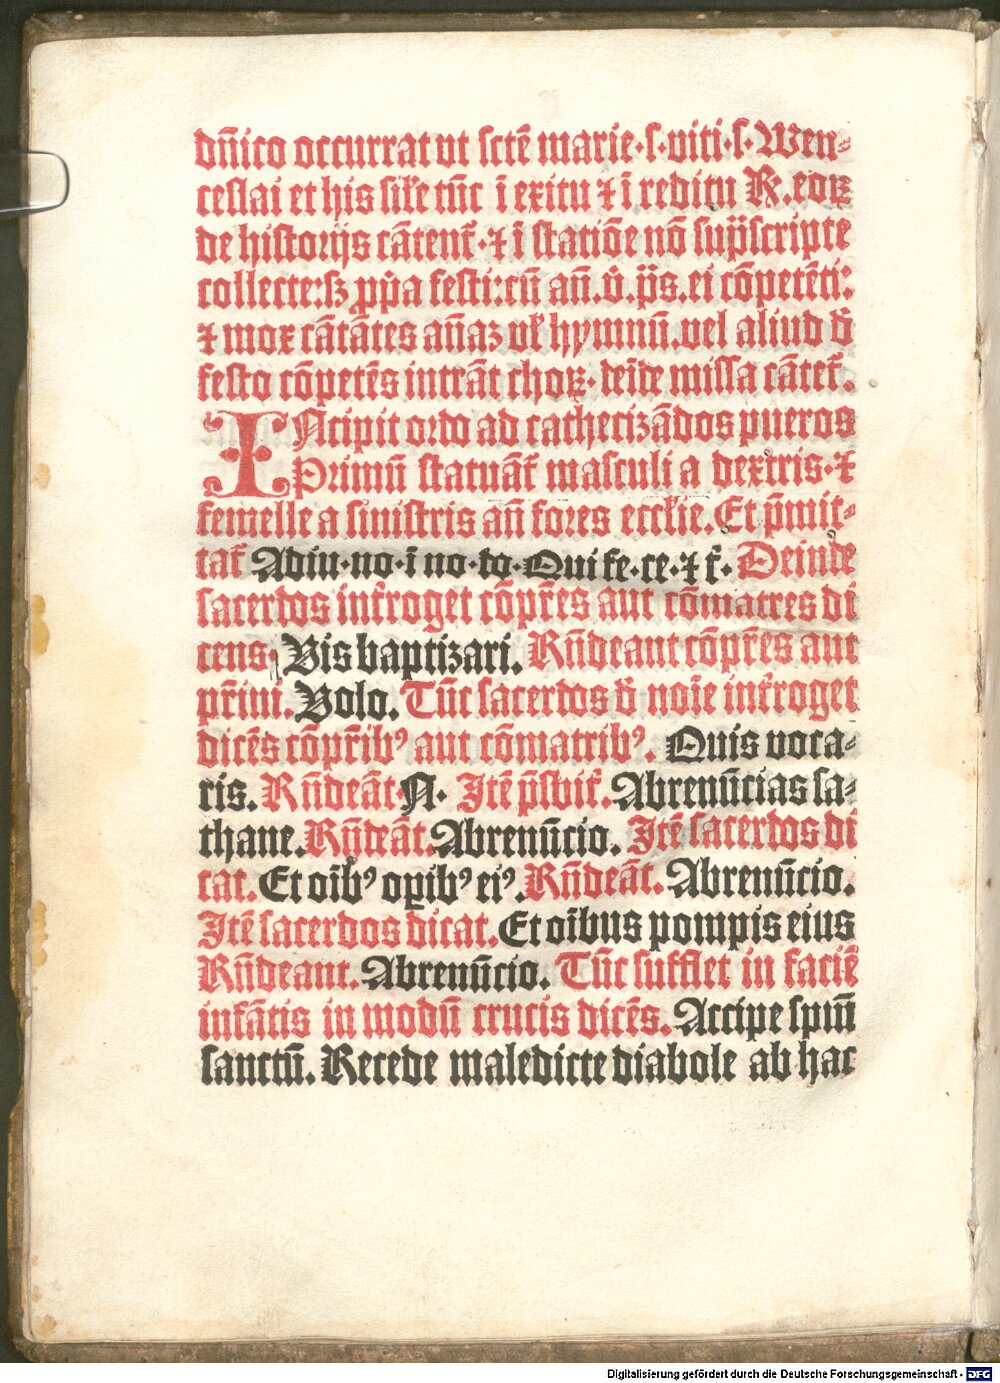 dñico occurrat ut sctē marie·s·viti·s·Wen-
ceslai et his sil'e tūc ī exitu ⁊ ī reditu R̃.eoꝝ
de historijs cātent̃·⁊ ī statiōe nō sup̄scripte
collecte:sꝫ ꝓp̄a festi:cū añ.v̉.p̄s.ei cōpetēti:
⁊ mox cātātes añaz vl' hymnū.vel aliud đ
festo cōpetēs intrāt choꝝ·deīde missa cātet̃.
INcipit ordo ad cathecizādos pueros
Primū statuāt̃ masculi a dextris·⁊
femelle a sinistris añ fores eccl'ie.Et p̄mit-
tat̃ Adiu·no·ī no·do·Qui fe·ce·⁊ t̃· Deinde
sacerdos int̃roget cōpr̄es aut cōmatres di
cens. Vis baptizari. Rñdeant cōpr̄es aut
pr̄ini. Volo. Tūc sacerdos đ noīe int̃roget
dicēs cōpr̄ibꝰ aut cōmatribꝰ. Quis voca-
ris. Rñdeāt·N· Itē p̄sbit̃. Abrenūcias sa-
thane. Rñdeāt. Abrenūcio. Itē sacerdos di
cat. Et oīb̄ꝰ oꝑibꝰ eiꝰ. Rñdeāt. Abrenūcio.
Itē sacerdos dicat. Et oībus pompis eius
Rñdeant. Abrenūcio. Tūc sufflet in faciē
infātis in modū crucis dicēs. Accipe spm̄
sanctū. Recede maledicte diabole ab hac
Digitalisierung gefördert durch die Deutsche Forschungsgemeinschaft - DFG